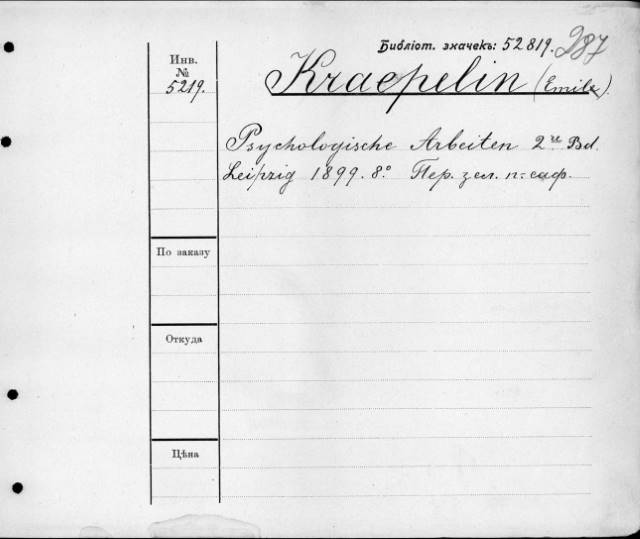 Библіот. значекъ: 52819. 287
Инв.
№
5219.
Kraepelin (Emil).
Psychologische Arbeiten 2er Bd.
Leipzig 1899. 8º Пер. зел. п: саф.
По заказу
Откуда
Цѣна